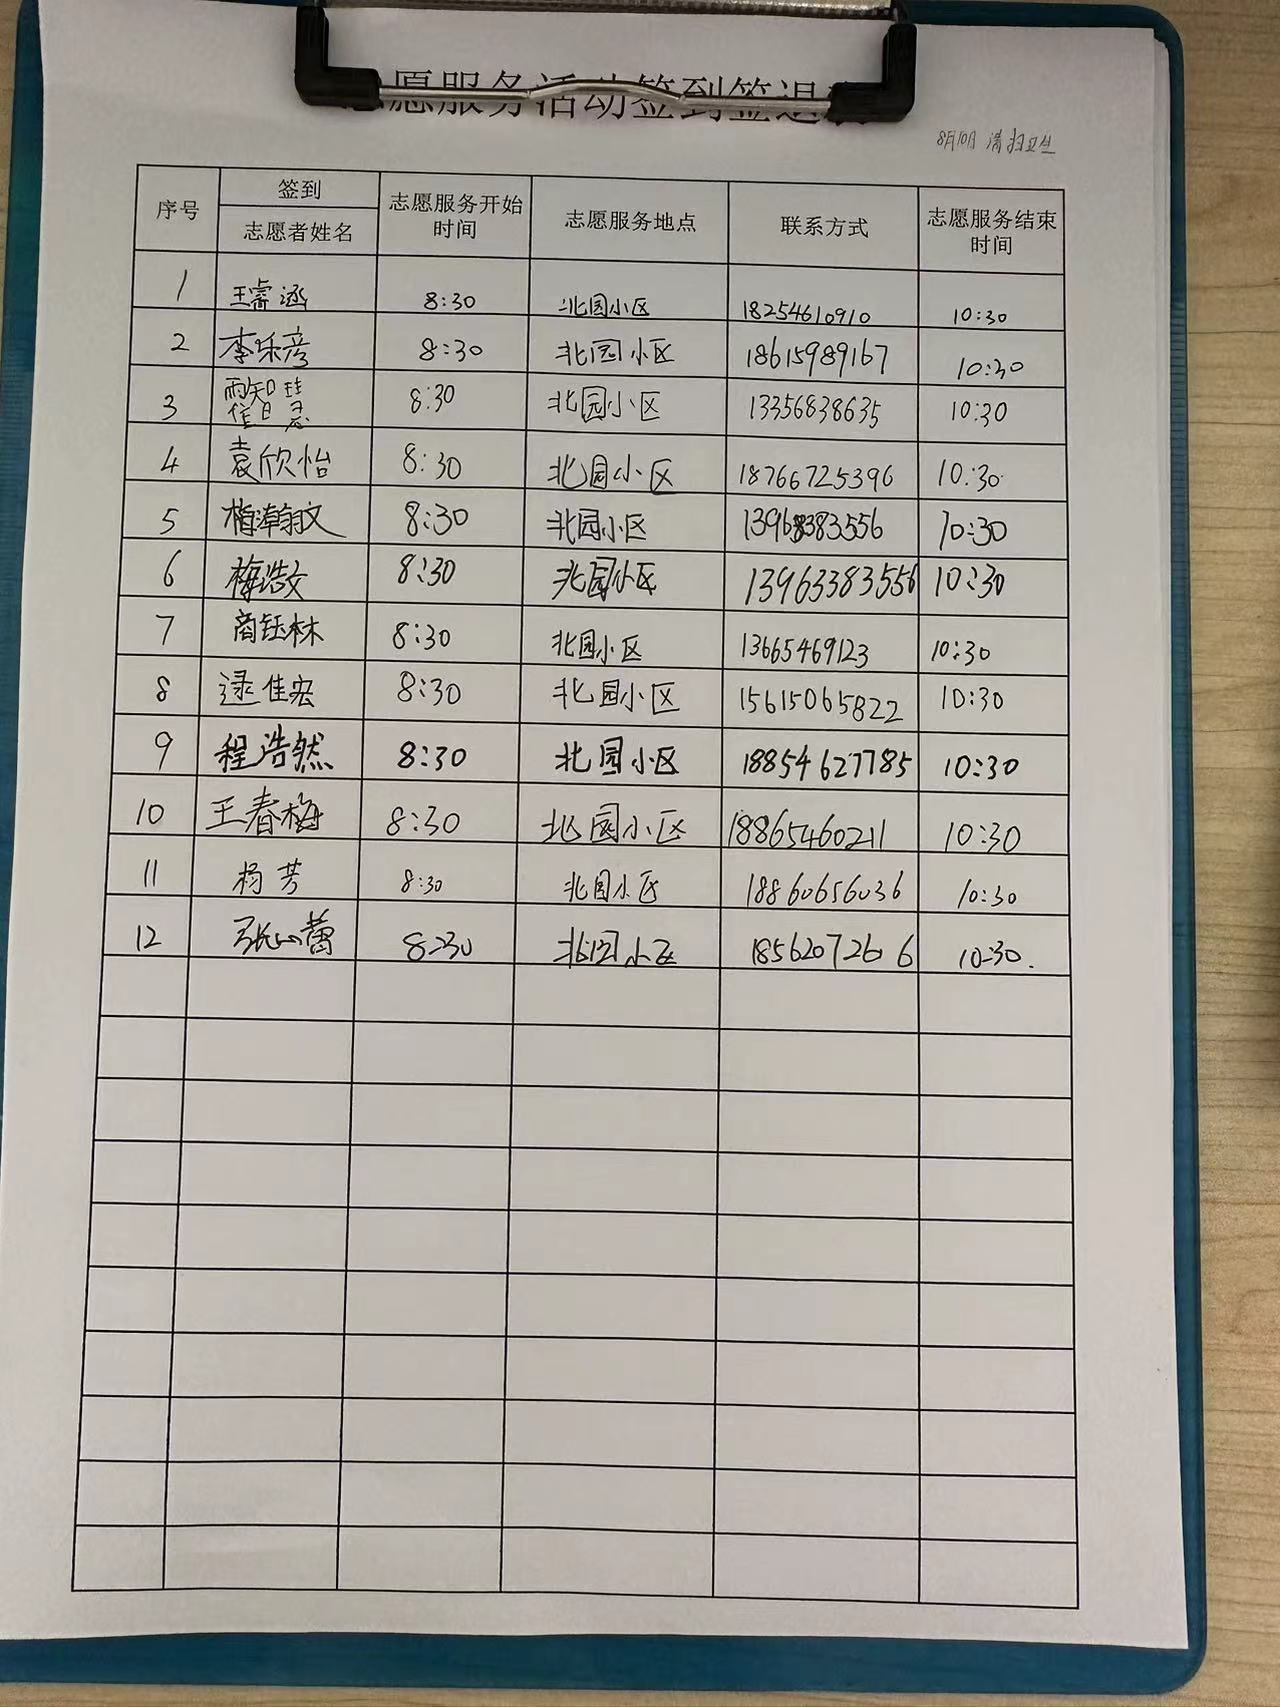 志愿服务活动签到签退表
8月10日 清扫卫生
序号 签到 志愿服务开始时间 志愿服务地点 联系方式 志愿服务结束时间
志愿者姓名
1 王睿涵 8:30 北园小区 18254610910 10:30
2 李乐彦 8:30 北园小区 18615989167 10:30
3 8:30 北园小区 13356838635 10:30
4 袁欣怡 8:30 北园小区 18766725396 10:30
5 梅瀚文 8:30 北园小区 13963383556 10:30
6 梅浩文 8:30 北园小区 13963383556 10:30
7 商钰林 8:30 北园小区 13665469123 10:30
8 逯佳宏 8:30 北园小区 15615065822 10:30
9 程浩然 8:30 北园小区 18854627785 10:30
10 王春梅 8:30 北园小区 18865460211 10:30
11 杨芳 8:30 北园小区 18860656036 10:30
12 张心蕾 8:30 北园小区 18562072606 10:30.